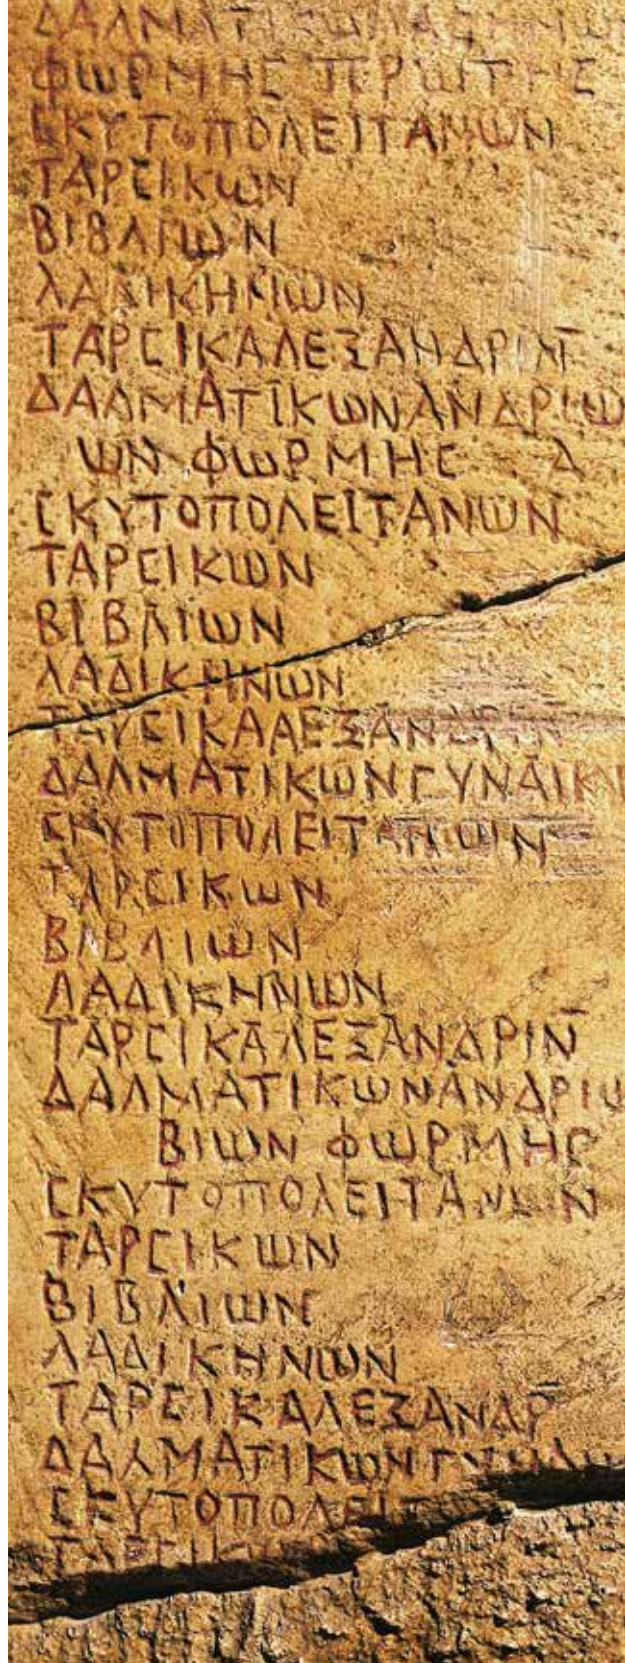 ΔΑΛΜΑΤΙΚΩΝ
ΦΩΡΜΗΣ ΠΡΩΤΗΣ
ϹΚΥΤΟΠΟΛΕΙΤΑΝΩΝ
ΤΑΡϹΙΚΩΝ
ΒΙΒΛΙΩΝ
ΛΑΔΙΚΗΝΩΝ
ΤΑΡϹΙΚΑΛΕΞΑΝΔΡΙΝ̅
ΔΑΛΜΑΤΙΚΩΝΑΝΔΡΙΩ
ΩΝ ΦΩΡΜΗϹ Α
ϹΚΥΤΟΠΟΛΕΙΤΑΝΩΝ
ΤΑΡϹΙΚΩΝ
ΒΙΒΛΙΩΝ
ΛΑΔΙΚΗΝΩΝ
ΤΑΡϹΙΚΑΛΕΞΑΝΔΡΙΝ
ΔΑΛΜΑΤΙΚΩΝΓΥΝΑΙΚΙ
ϹΚΥΤΟΠΟΛΕΙΤΑΝΩΝ
ΤΑΡϹΙΚΩΝ
ΒΙΒΛΙΩΝ
ΛΑΔΙΚΗΝΩΝ
ΤΑΡϹΙΚΑΛΕΞΑΝΔΡΙΝ̅
ΔΑΛΜΑΤΙΚΩΝΑΝΔΡΙΩ
ΒΙΩΝ ΦΩΡΜΗϹ
ϹΚΥΤΟΠΟΛΕΙΤΑΝΩΝ
ΤΑΡϹΙΚΩΝ
ΒΙΒΛΙΩΝ
ΛΑΔΙΚΗΝΩΝ
ΤΑΡϹΙΚΑΛΕΞΑΝΔΡ̅
ΔΑΛΜΑΤΙΚΩΝΓΥΝΑΙ
ϹΚΥΤΟΠΟΛΕΙΤ
ΤΑΡϹΙΚ